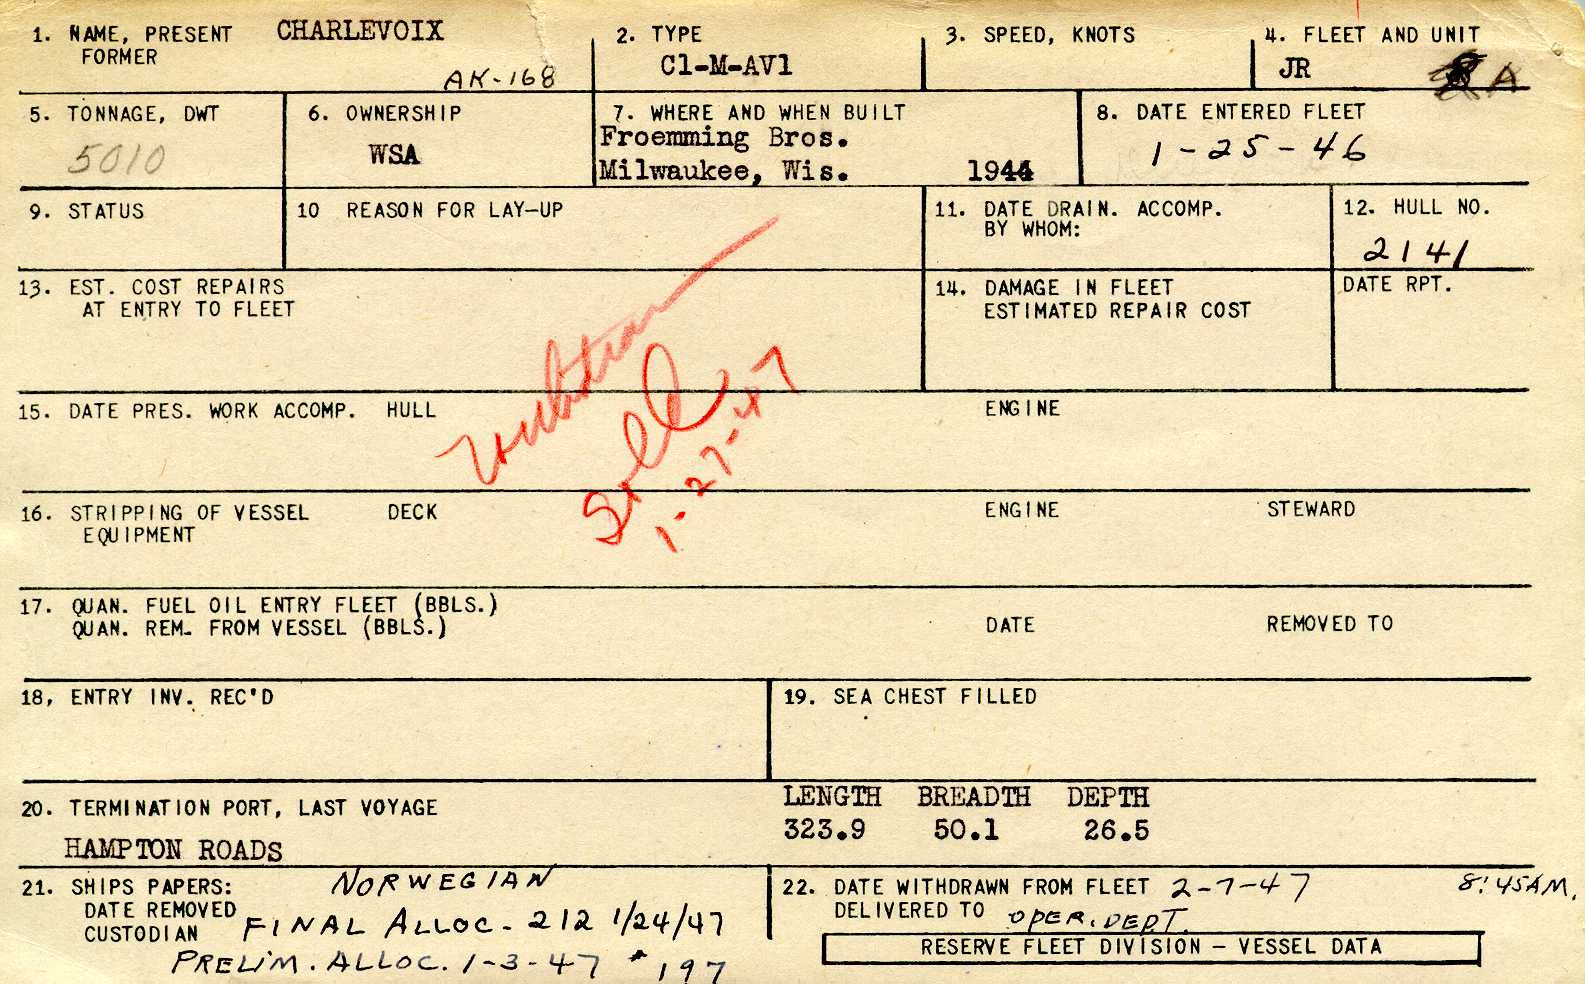 1. NAME, PRESENT CHARLEVOIX
FORMER
AK-168
2. TYPE
C1-M-AV1
3. SPEED, KNOTS
4. FLEET AND UNIT
JR A
5. TONNAGE, DWT
5010
6. OWNERSHIP
WSA
7. WHERE AND WHEN BUILT
Froemming Bros.
Milwaukee, Wis. 1944
8. DATE ENTERED FLEET
1-25-46
9. STATUS
10 REASON FOR LAY-UP
11. DATE DRAIN. ACCOMP.
BY WHOM:
12. HULL NO.
2141
13. EST. COST REPAIRS
AT ENTRY TO FLEET
14. DAMAGE IN FLEET
ESTIMATED REPAIR COST
DATE RPT.
Sold
1-27-47
15. DATE PRES. WORK ACCOMP. HULL ENGINE
16. STRIPPING OF VESSEL DECK ENGINE STEWARD
EQUIPMENT
17. QUAN. FUEL OIL ENTRY FLEET (BBLS.)
QUAN. REM. FROM VESSEL (BBLS.) DATE REMOVED TO
18, ENTRY INV. REC'D
19. SEA CHEST FILLED
20. TERMINATION PORT, LAST VOYAGE
HAMPTON ROADS
LENGTH BREADTH DEPTH
323.9 50.1 26.5
21. SHIPS PAPERS: NORWEGIAN
DATE REMOVED
CUSTODIAN FINAL ALLOC. - 212 1/24/47
PRELIM. ALLOC. 1-3-47 # 197
22. DATE WITHDRAWN FROM FLEET 2-7-47 8:45AM.
DELIVERED TO OPER. DEPT.
RESERVE FLEET DIVISION - VESSEL DATA